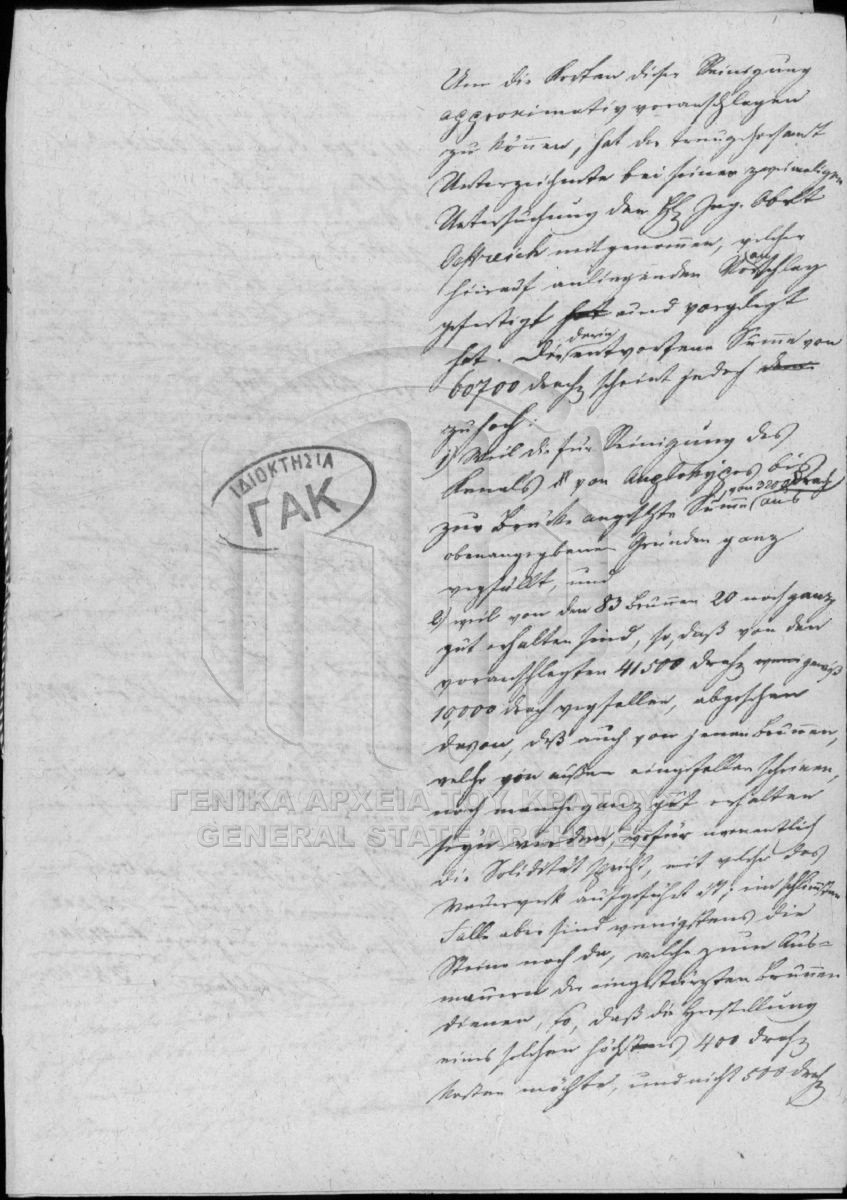 Um die Kosten dieser Reinigung
approximativ voranschlagen
zu können, hat der treugehorsamst
Unterzeichnete bei seiner zweimaligen
Untersuchung den Ing. Oblt
Oestreich mitgenommen, welcher
hierauf anliegenden Voranschlag
gefertigt hat und vorgelegt
hat. Die darin entworfene Summe von
60700 Drach scheint jedoch
zu hoch.
1) Weil die für Reinigung des
Kanals von Ampelokipos bis
zur Brücke angesetzte Summe von 3200 Drach aus
obenangegebenen Gründen ganz
wegfällt, und
2) weil von den 83 Brunnen 20 noch ganz
gut erhalten sind, so, daß von den
voranschlagten 41500 Drach gewiß
10,000 Drach wegfallen, abgesehen
davon, daß auch von jenen Brunnen,
welche von außen eingefallen scheinen,
noch manche ganz gut erhalten
seyn werden, wofür namentlich
die Solidität spricht, mit welcher das
Mauerwerk ausgeführt ist; im schlimmsten
Falle aber sind wenigstens die
Steine noch da, welche zum Aus-
mauern der eingestürzten Brunnen
dienen, so, daß die Herstellung
eines solchen höchstens 400 Drach
kosten möchte, und nicht 500 Drach
ΙΔΙΟΚΤΗΣΙΑ
ΓΑΚ
ΓΕΝΙΚΑ ΑΡΧΕΙΑ ΤΟΥ ΚΡΑΤΟΥΣ
GENERAL STATE ARCHIVES